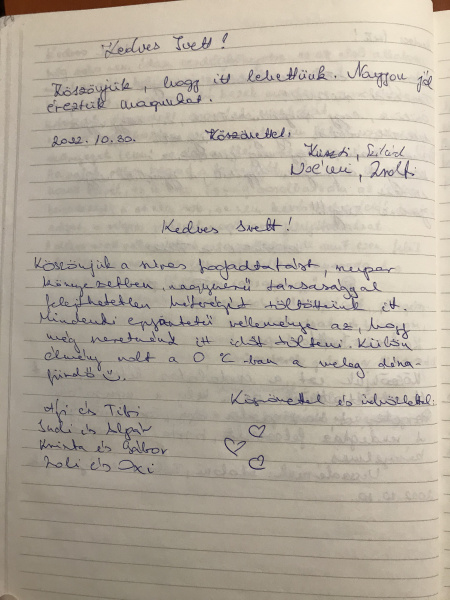 Kedves Ivett!
Köszönjük, hogy itt lehettünk. Nagyon jól
éreztük magunkat.
2022. 10. 30. Köszönettel:
Kriszti, Szilárd
Noémi, Zsolti
Kedves Ivett!
Köszönjük a szíves fogadtatást, szuper
környezetben, nagyszerű társasággal
felejthetetlen hétvégét töltöttünk itt.
Mindenki egyöntetű véleménye az, hogy
még szeretnénk itt időt tölteni. Külön
élmény volt a 0 °C-ban a meleg dézsa-
fürdő
Köszönettel és üdvözlettel:
és Tibi
Judi és
Kriszta és Gábor
Zoli és